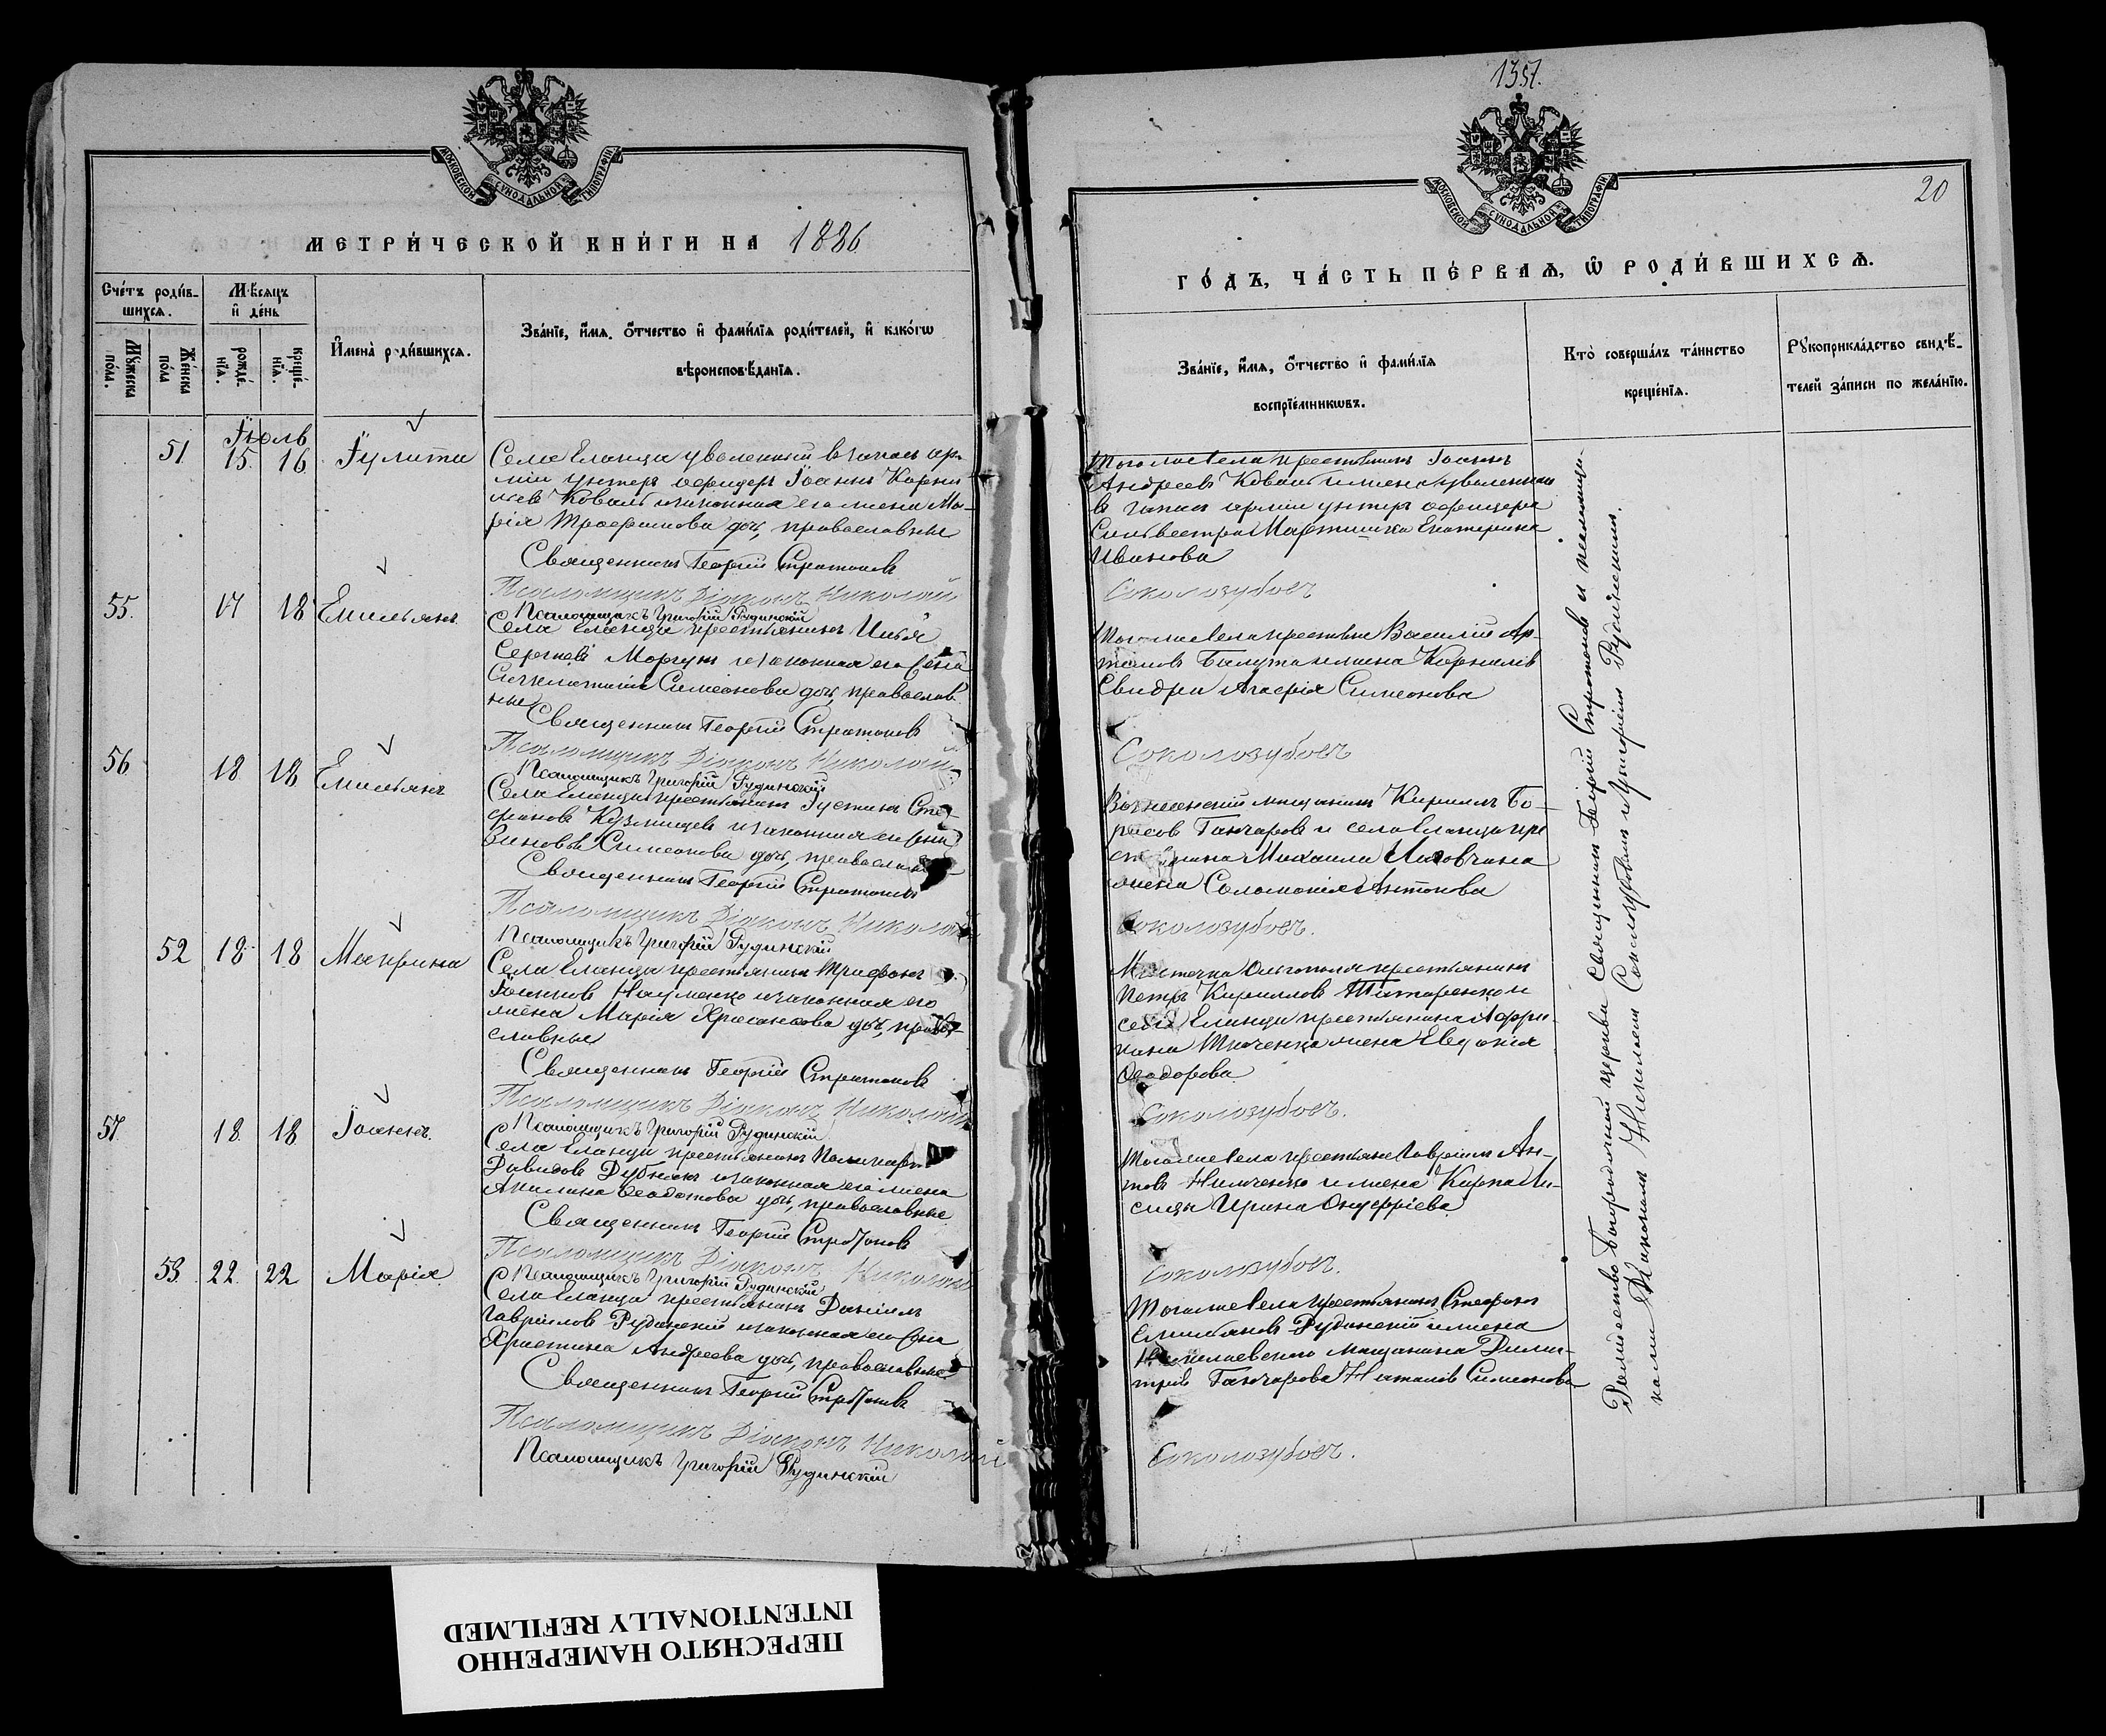 1357.
20
МОСКОВСКОЙ СѴНОДАЛЬНОЙ ТИПОГРАФІИ
МЕТРИ́ЧЕСКОЙ КНИ́ГИ НА 1886
Сче́тъ роди́в-
шихсѧ.
Мѣсѧцъ
и҆ де́нь
Мꙋжеска
по́ла.
Же́нска
по́ла
рожде́-
нїѧ.
креще́-
нїѧ.
И҆мена̀ роди́вшихсѧ.
Зва́нїе, и҆́мѧ, ѻ҆́тчество и҆ фами́лїѧ роди́телей, и҆ како́гѡ
вѣроисповѣ́данїѧ.
Іюль
51. 15. 16. Іулита
Села Еланца уволенный в запас ар-
міи унтеръ офицеръ Іоаннъ Корни
ліевъ Коваль и законная его жена Ма-
рія Трофимова доч, православные
Священникъ Георгій Стратоновъ
Псаломщикъ Діаконъ Николай
Псаломщикъ Григорій Рудинскій
55. 17 18 Емильянъ
Села Еланца крестьянинъ Илья
Сергіевъ Моргунъ и законная его жена
Синклитикія Симеонова доч, православ
ные
Священникъ Георгій Стратоновъ
Псаломщикъ Діаконъ Николай
Псаломщикъ Григорій Рудинскій
56 18. 18. Емильянъ
Села Еланца крестьянинъ Іустинъ Сте-
фановъ Кузмищевъ и законная его жена
Зиновія Симеонова доч, православные
Священникъ Георгій Стратоновъ
Псаломщикъ Діаконъ Николай
Псаломщикъ Григорій Рудинскій
52 18 18 Макрина
Села Еланца крестьянинъ Трифонъ
Іоанновъ Науменко и законная его
жена Марія Хрисанфова доч, право-
славные
Священникъ Георгій Стратоновъ
Псаломщикъ Діаконъ Николай
Псаломщикъ Григорій Рудинскій
57. 18. 18 Іоаннъ.
Села Еланца крестьянинъ Поликарпъ
Давидовъ Дубнякъ и законная его жена
Акилина Феодотова доч, православные
Священникъ Георгій Стратоновъ
Псаломщикъ Діаконъ Николай
Псаломщикъ Григорій Рудинскій
53. 22. 22 Марія
Села Еланца крестьянинъ Даніилъ
Гавріиловъ Рудинскій и законная его жена
Христина Андреева доч, православные
Священникъ Георгій Стратоновъ
Псаломщикъ Діаконъ Николай
Псаломщикъ Григорій Рудинскій
МОСКОВСКОЙ СѴНОДАЛЬНОЙ ТИПОГРАФІИ
ГО́ДЪ, ЧА́СТЬ ПЕ́РВАѦ, Ѡ҆ РОДИ́ВШИХСѦ.
Зва́нїе, и҆́мѧ, ѻ҆́тчество и҆ фами́лїѧ
воспрїе́мникѡвъ.
Кто̀ соверша́лъ та́инство
креще́нїѧ.
Рꙋкоприкла́дство свидѣ́-
телей за́писи по жела́нїю.
Того же села крестьянинъ Іоаннъ
Андреевъ Коваль и жена уволеннаго
в запас арміи унтеръ офицера
Сильвестра Мартишка Екатерина
Иванова
Соколозубовъ
Того же села крестьяне Василій Ар-
темовъ Балута и жена Корнилія
Свидра Агафія Симеонова
Соколозубовъ
Вознесенскій мещанинъ Кириллъ Бо-
рисов Ганчаровъ и села Еланца кре
стьянина Михаила
жена Соломонія Антонова
Соколозубовъ.
Местечка Ольгополя крестьянинъ
Петръ Кирилловъ Титаренко и
села Еланца крестьянина Афри-
кана Ткаченка жена Евдокія
Феодорова
Соколозубовъ.
Того же села крестьяне Гавріилъ Ан-
товъ Нимченко и жена Карпа Ли-
сицы Ирина Онуфріева
Соколозубовъ.
Того же села крестьянинъ Стефанъ
Емильяновъ Рудинскій и жена
Николаевскаго мещанина Дими-
трія Ганчарова Наталія Симеонова
Соколозубовъ.
церкви Священникъ Георгій Стратоновъ и псаломщи-
ками Діакономъ Николаемъ Соколозубовымъ и Григоріемъ Рудинскимъ.
ПЕРЕСНЯТО НАМЕРЕННО
INTENTIONALLY REFILMED